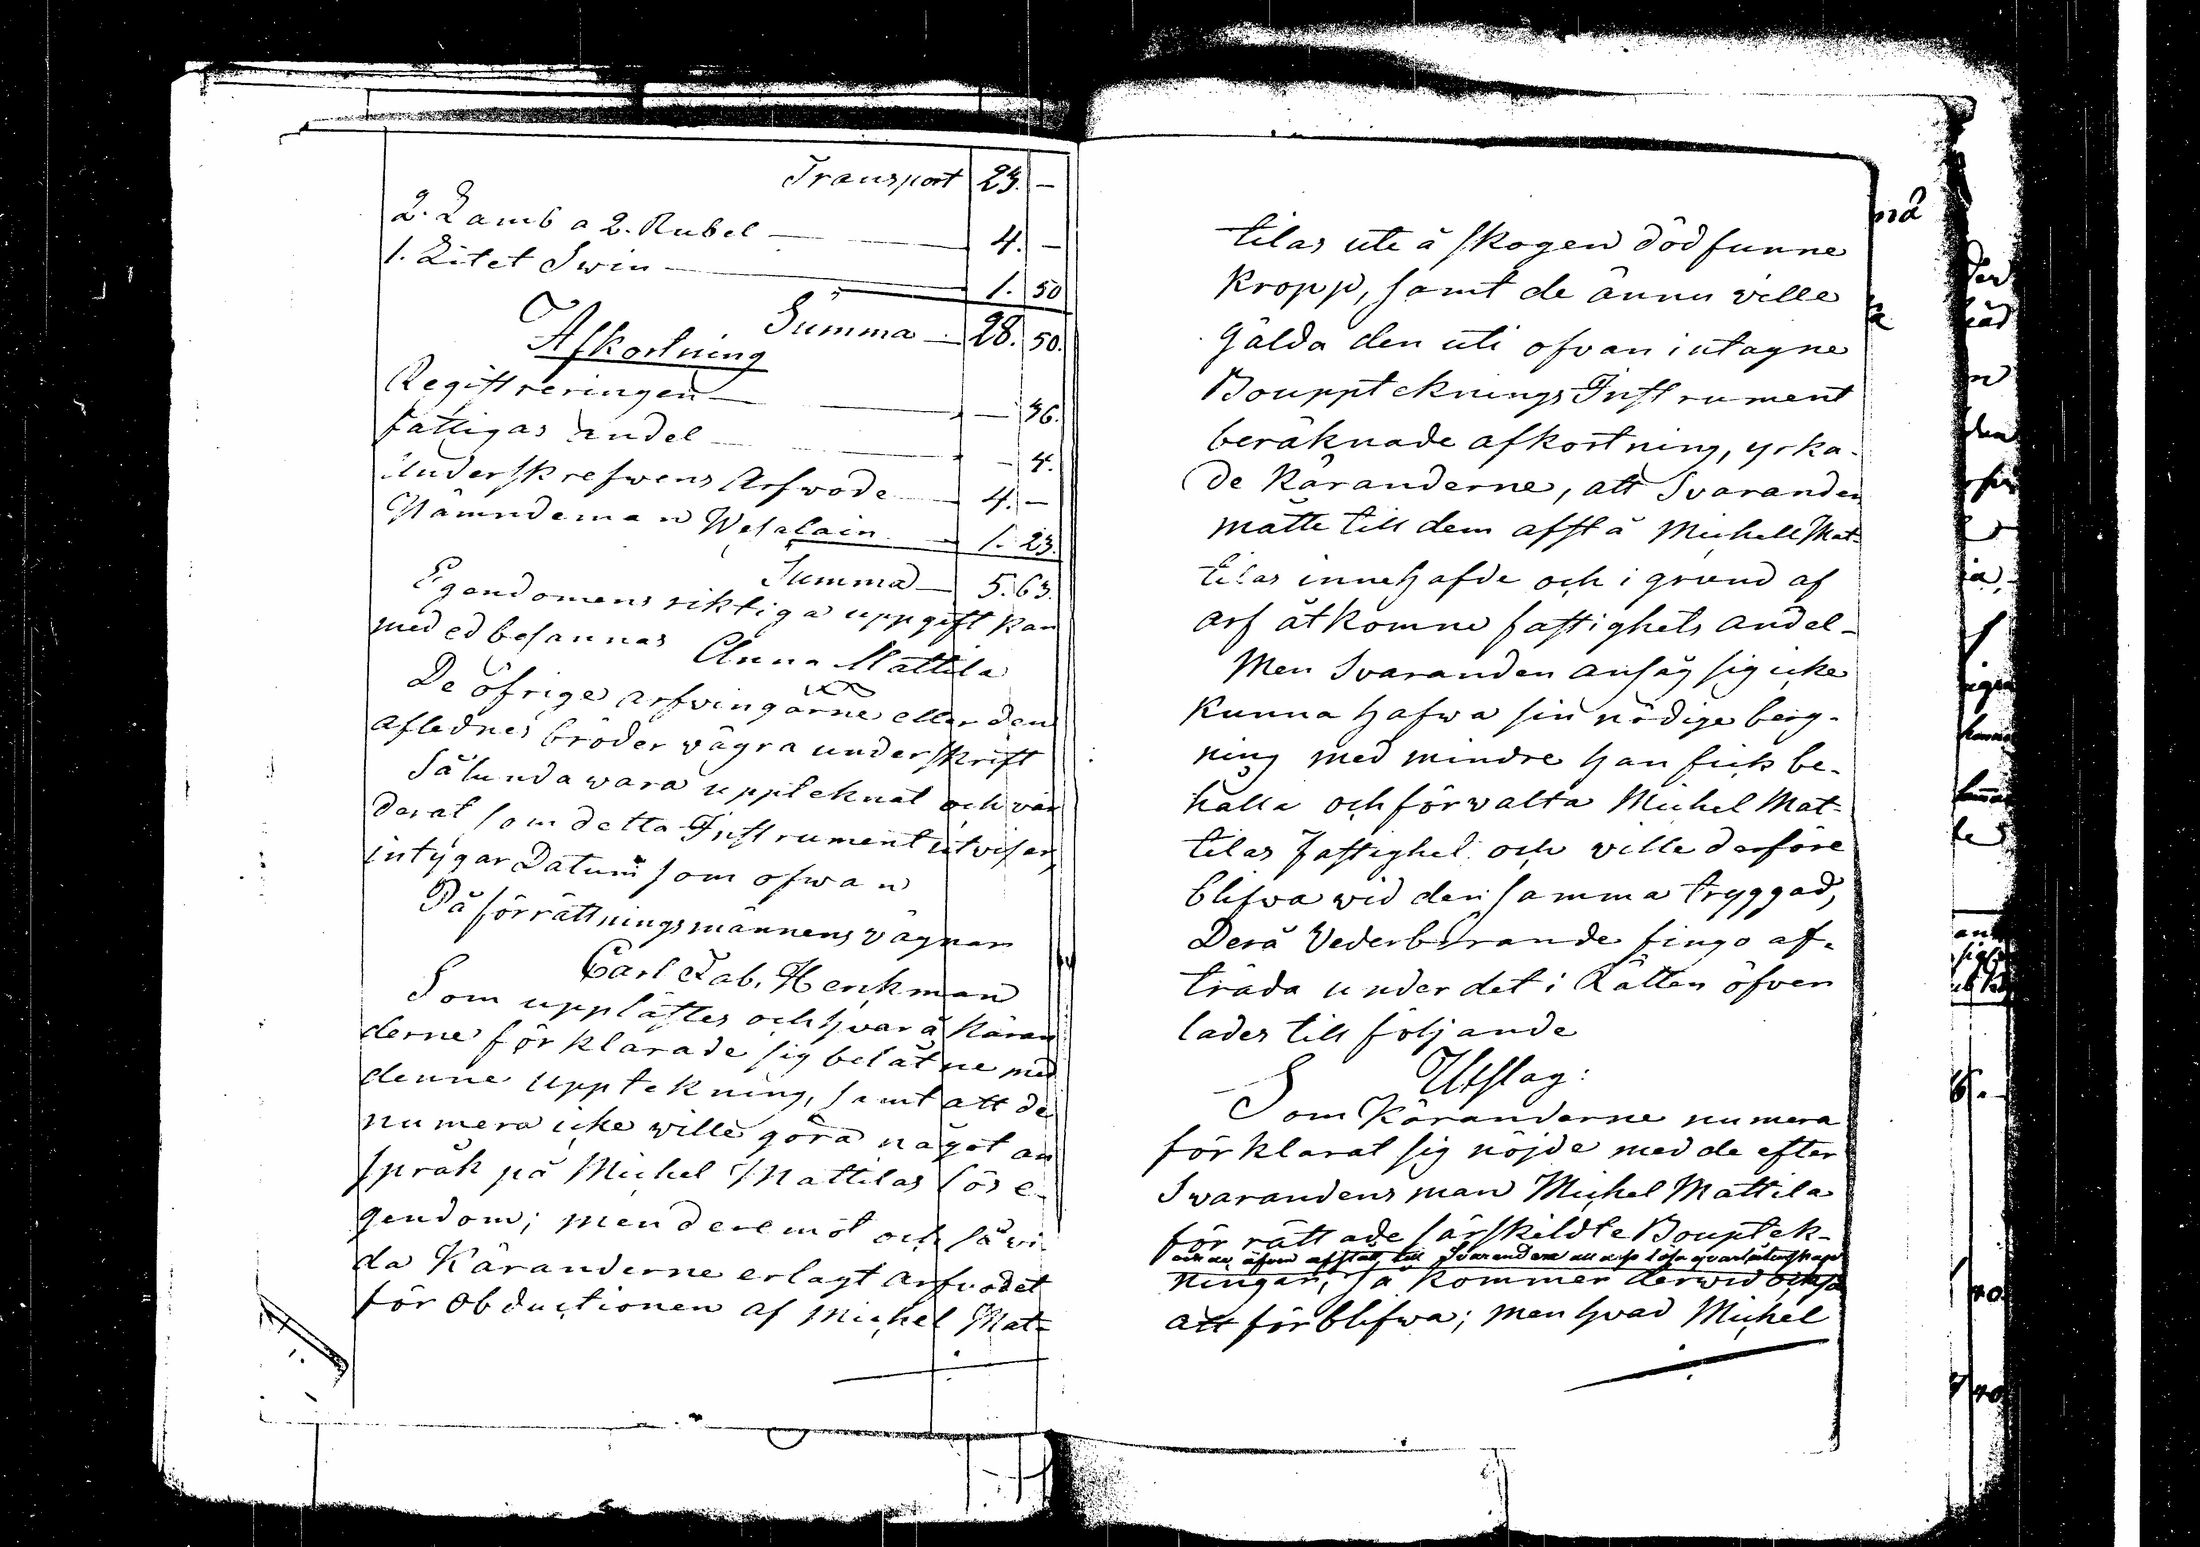 Transport 23. —
2. Lamb a 2. Rubel — 4. —
1. Litet Swin — 1. 50
Summa — 28. 50.
Afkortning
Registreringen — — 36.
fattigas andel — — 4.
Underskrefwens Arfwode — 4. —
Nämndeman Wesalain — 1. 23.
Summa — 5. 63.
Egendomens riktiga uppgift kan
med ed besannas Anna Mattila
De öfrige arfvingarne eller den
aflednes bröder vägra underskrift
Sålunda wara upptecknat och vär
derat som detta Instrument utvisar,
intygar Datum som ofwan
På förrättningsmännens vägnar
Carl Fab. Henkman
Som upplästes och hvarå Käran
derne förklarade sig belåtne med
denne uppteckning, samt att de
numera icke wille göra något an
språk på Michel Mattilas lös e-
gendom; men deremot och såvi-
da Käranderne erlagt arfvodet
för Obductionen af Michel Mat-
tilas ute å skogen död funne
Kropp, samt de ännu ville
gälda den uti ofvan intagne
Bouppteknings Instrument
beräknade afkortning, yrka-
de Käranderne, att Svaranden
måtte till dem afstå Michell Mat-
tilas innehafde och i grund af
arf åtkomne fastighets andel-
Men Svaranden ansåg sig icke
kunna hafwa sin nödige berg-
ning med mindre han fick be-
hålla och förvalta Michel Mat-
tilas fastighet och ville derföre
blifva wid den samma tryggad,
Derå Vederbörande fingo af-
träda under det i Rätten öfver
lades till följande
Utslag:
Som Käranderne numera
förklarat sig nöjde med de efter
Svarandens man Michel Mattila
för rättade särskildte Bouptek-
afstått till Svaranden all lösa qvarlåtenskap
ningar, så kommer derwid också
att förblifwa; men hvad Michel